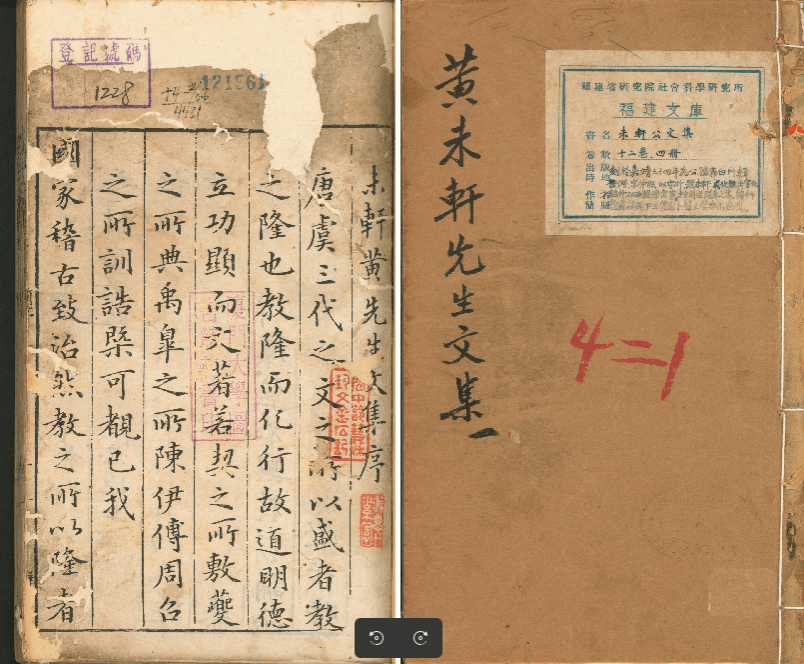 登記號碼
1228
121561
未軒黃先生文集序
唐虞三代之文之所以盛者教
之隆也教隆而化行故道明德
立功顯而文著若契之所敷夔
之所典禹皋之所陳伊傅周召
之所訓誥槩可覩已我
國家稽古致治熙教之所以隆者
黃未軒先生文集
一
福建省研究院社會科學研究所
福建文庫
書名 未軒公文集
卷數 十二卷 四冊
出版時
作者簡
4=1